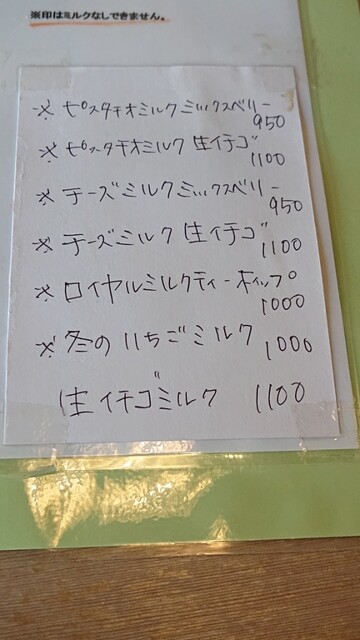 ※印はミルクなしできません。
※ピスタチオミルクミックスベリー
950
※ピスタチオミルク生イチゴ
1100
※チーズミルクミックスベリー
950
※チーズミルク生イチゴ
1100
※ロイヤルミルクティーホイップ
1000
※冬のいちごミルク
1000
生イチゴミルク 1100